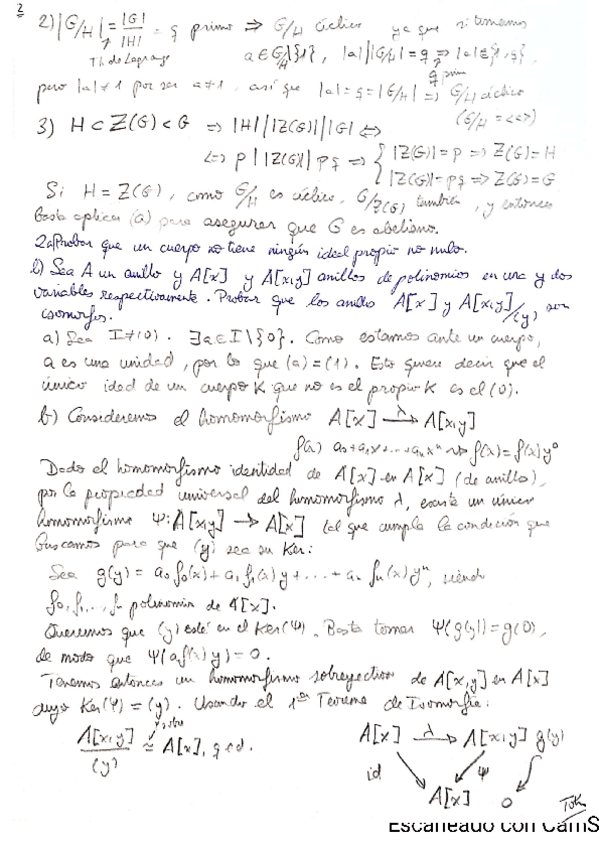 2
2) |G/H| = |G|/|H| = q primo => G/H cíclico ya que si tenemos
Th. de Lagrange a ∈ G/H \ {1}, |a| | |G/H| = q => |a| ∈ {1, q},
q primo
pero |a| ≠ 1 por ser a ≠ 1, así que |a| = q = |G/H| => G/H cíclico
(G/H = <a>)
3) H ⊂ Z(G) < G => |H| | |Z(G)| | |G| <=>
<=> p | |Z(G)| | pq => { |Z(G)| = p => Z(G) = H
|Z(G)| = pq => Z(G) = G
Si H = Z(G), como G/H es cíclico, G/Z(G) también, y entonces
basta aplicar (a) para asegurar que G es abeliano.
2a) Probar que un cuerpo no tiene ningún ideal propio no nulo.
b) Sea A un anillo y A[x] y A[x,y] anillos de polinomios en una y dos
variables respectivamente. Probar que los anillos A[x] y A[x,y]/(y) son
isomorfos.
a) Sea I ≠ (0). ∃a ∈ I \ {0}. Como estamos ante un cuerpo,
a es una unidad, por lo que (a) = (1). Esto quiere decir que el
único ideal de un cuerpo K que no es el propio K es el (0).
b) Consideremos el homomorfismo A[x] —λ→ A[x,y]
f(x) a₀+a₁x+...+aₙxⁿ ⇝ f(x) = f(x)y⁰
Dado el homomorfismo identidad de A[x] en A[x] (de anillos),
por la propiedad universal del homomorfismo λ, existe un único
homomorfismo Ψ: A[x,y] → A[x] tal que cumpla la condición que
buscamos para que (y) sea su Ker:
Sea g(y) = a₀f₀(x) + a₁f₁(x)y + ... + aₙfₙ(x)yⁿ, siendo
f₀, f₁, ..., fₙ polinomios de A[x].
Queremos que (y) esté en el Ker(Ψ). Basta tomar Ψ(g(y)) = g(0),
de modo que Ψ(af(x)y) = 0.
Tenemos entonces un homomorfismo sobreyectivo de A[x,y] en A[x]
cuyo Ker(Ψ) = (y). Usando el 1er Teorema de Isomorfía:
A[x,y]/(y) ≅ A[x], q.e.d.
A[x] —λ→ A[x,y] g(y)
id Ψ
A[x] 0
Escaneado con CamS